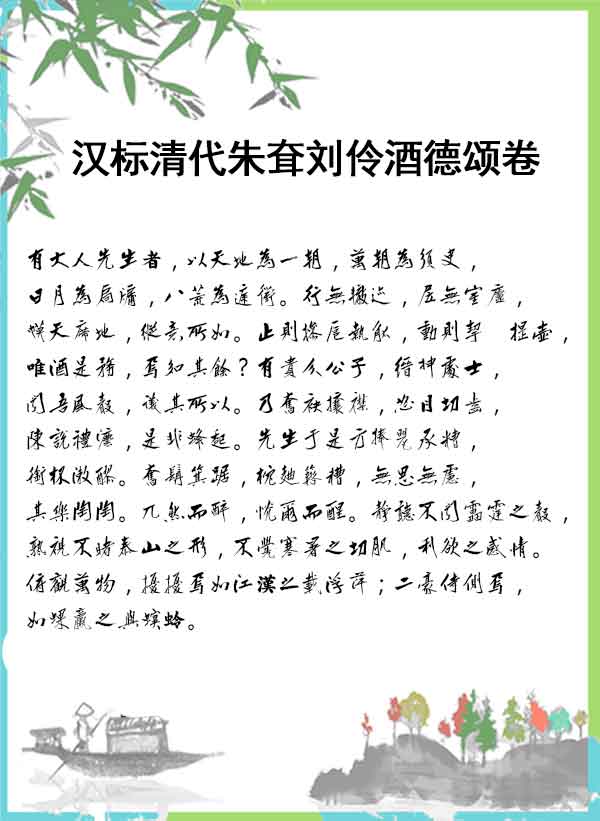 汉标清代朱耷刘伶酒德颂卷
有大人先生者，以天地為一朝，萬朝為須臾，
日月為扃牖，八荒為庭衢。行無轍迹，居無室廬，
幙天席地，縱意所如。止則操卮執觚，動則挈 提壺，
唯酒是務，焉知其餘？有貴介公子，縉紳處士，
聞吾風聲，議其所以。乃奮袂攘襟，怒目切齒，
陳說禮法，是非蜂起。先生于是方捧罌承糟，
銜杯漱醪。奮髯箕踞，枕麯藉糟，無思無慮，
其樂陶陶。兀然而醉，恍爾而醒。靜聽不聞雷霆之聲，
熟視不睹泰山之形，不覺寒暑之切肌，利欲之感情。
俯觀萬物，擾擾焉如江漢之載浮萍；二豪侍側焉，
如蜾蠃之與螟蛉。